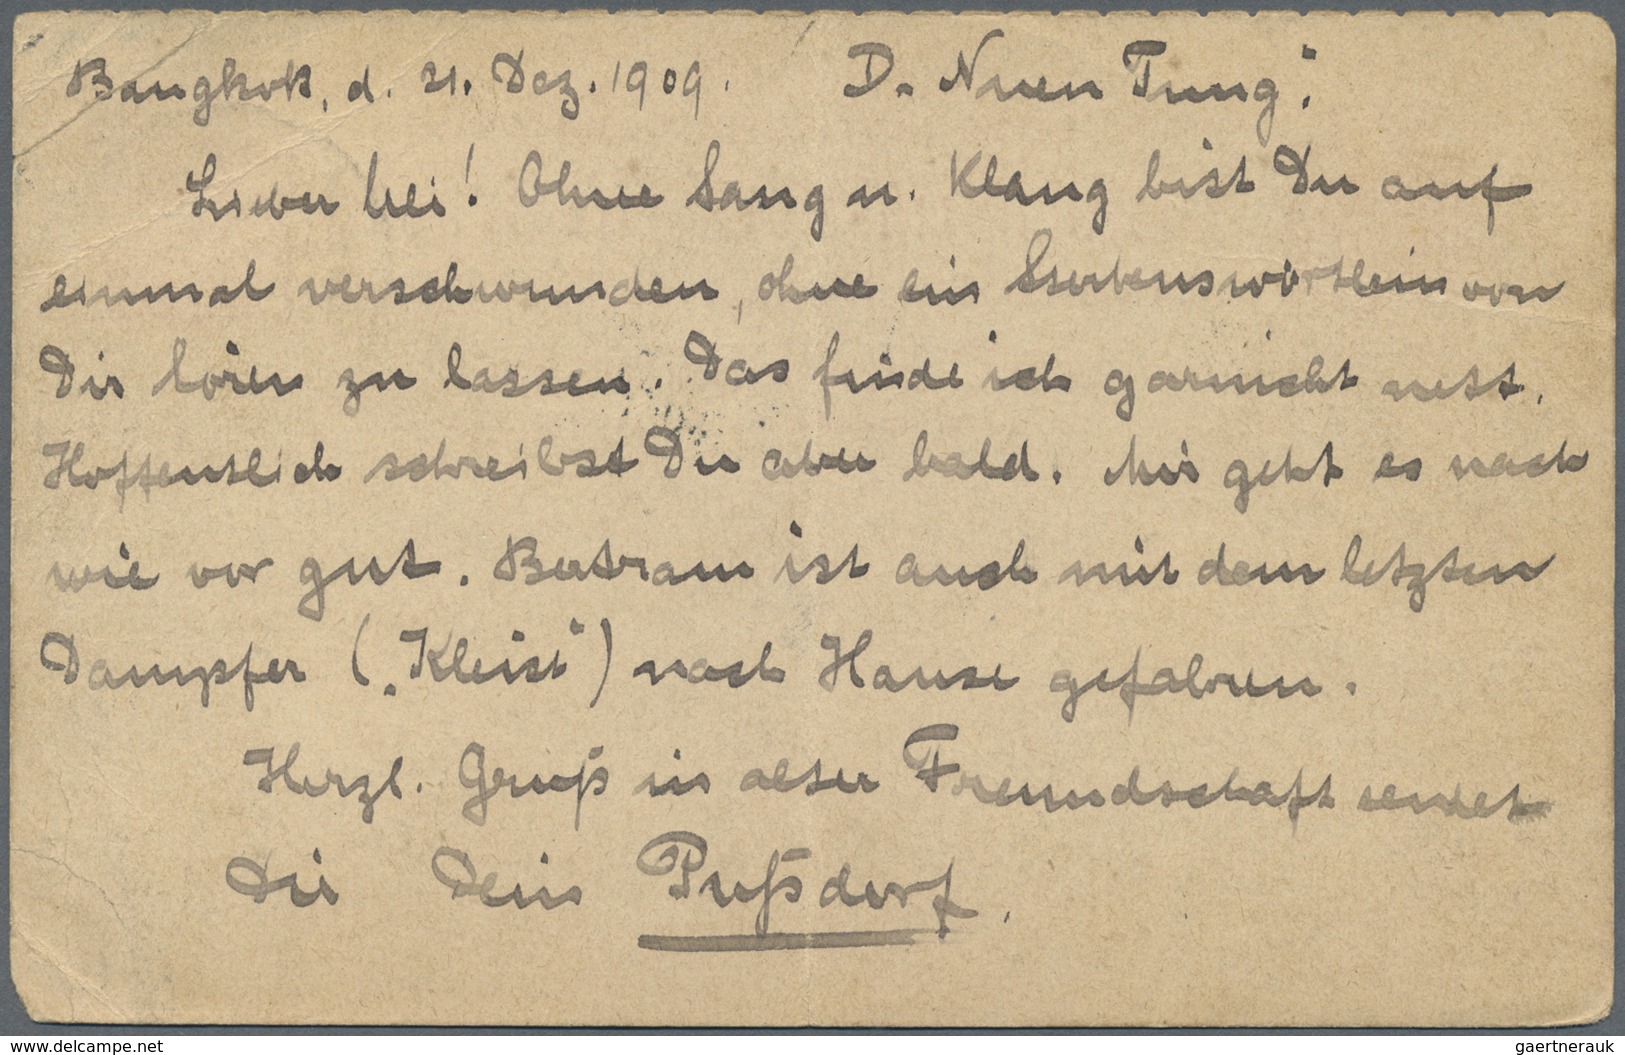 Bangkok, d. 21. Dez. 1909. D. Nuen Tung:
Lieber Uli! Ohne Sang u. Klang bist Du auf
einmal verschwunden, ohne ein Sterbenswörtlein von
Dir hören zu lassen. Das finde ich garnicht nett.
Hoffentlich schreibst Du aber bald. Mir geht es nach
wie vor gut. Bertram ist auch mit dem letzten
Dampfer („Kleist“) nach Hause gefahren.
Herzl. Gruß in alter Freundschaft sendet
Dir Dein Pußdorf.
www.delcampe.net
gaertnerauk